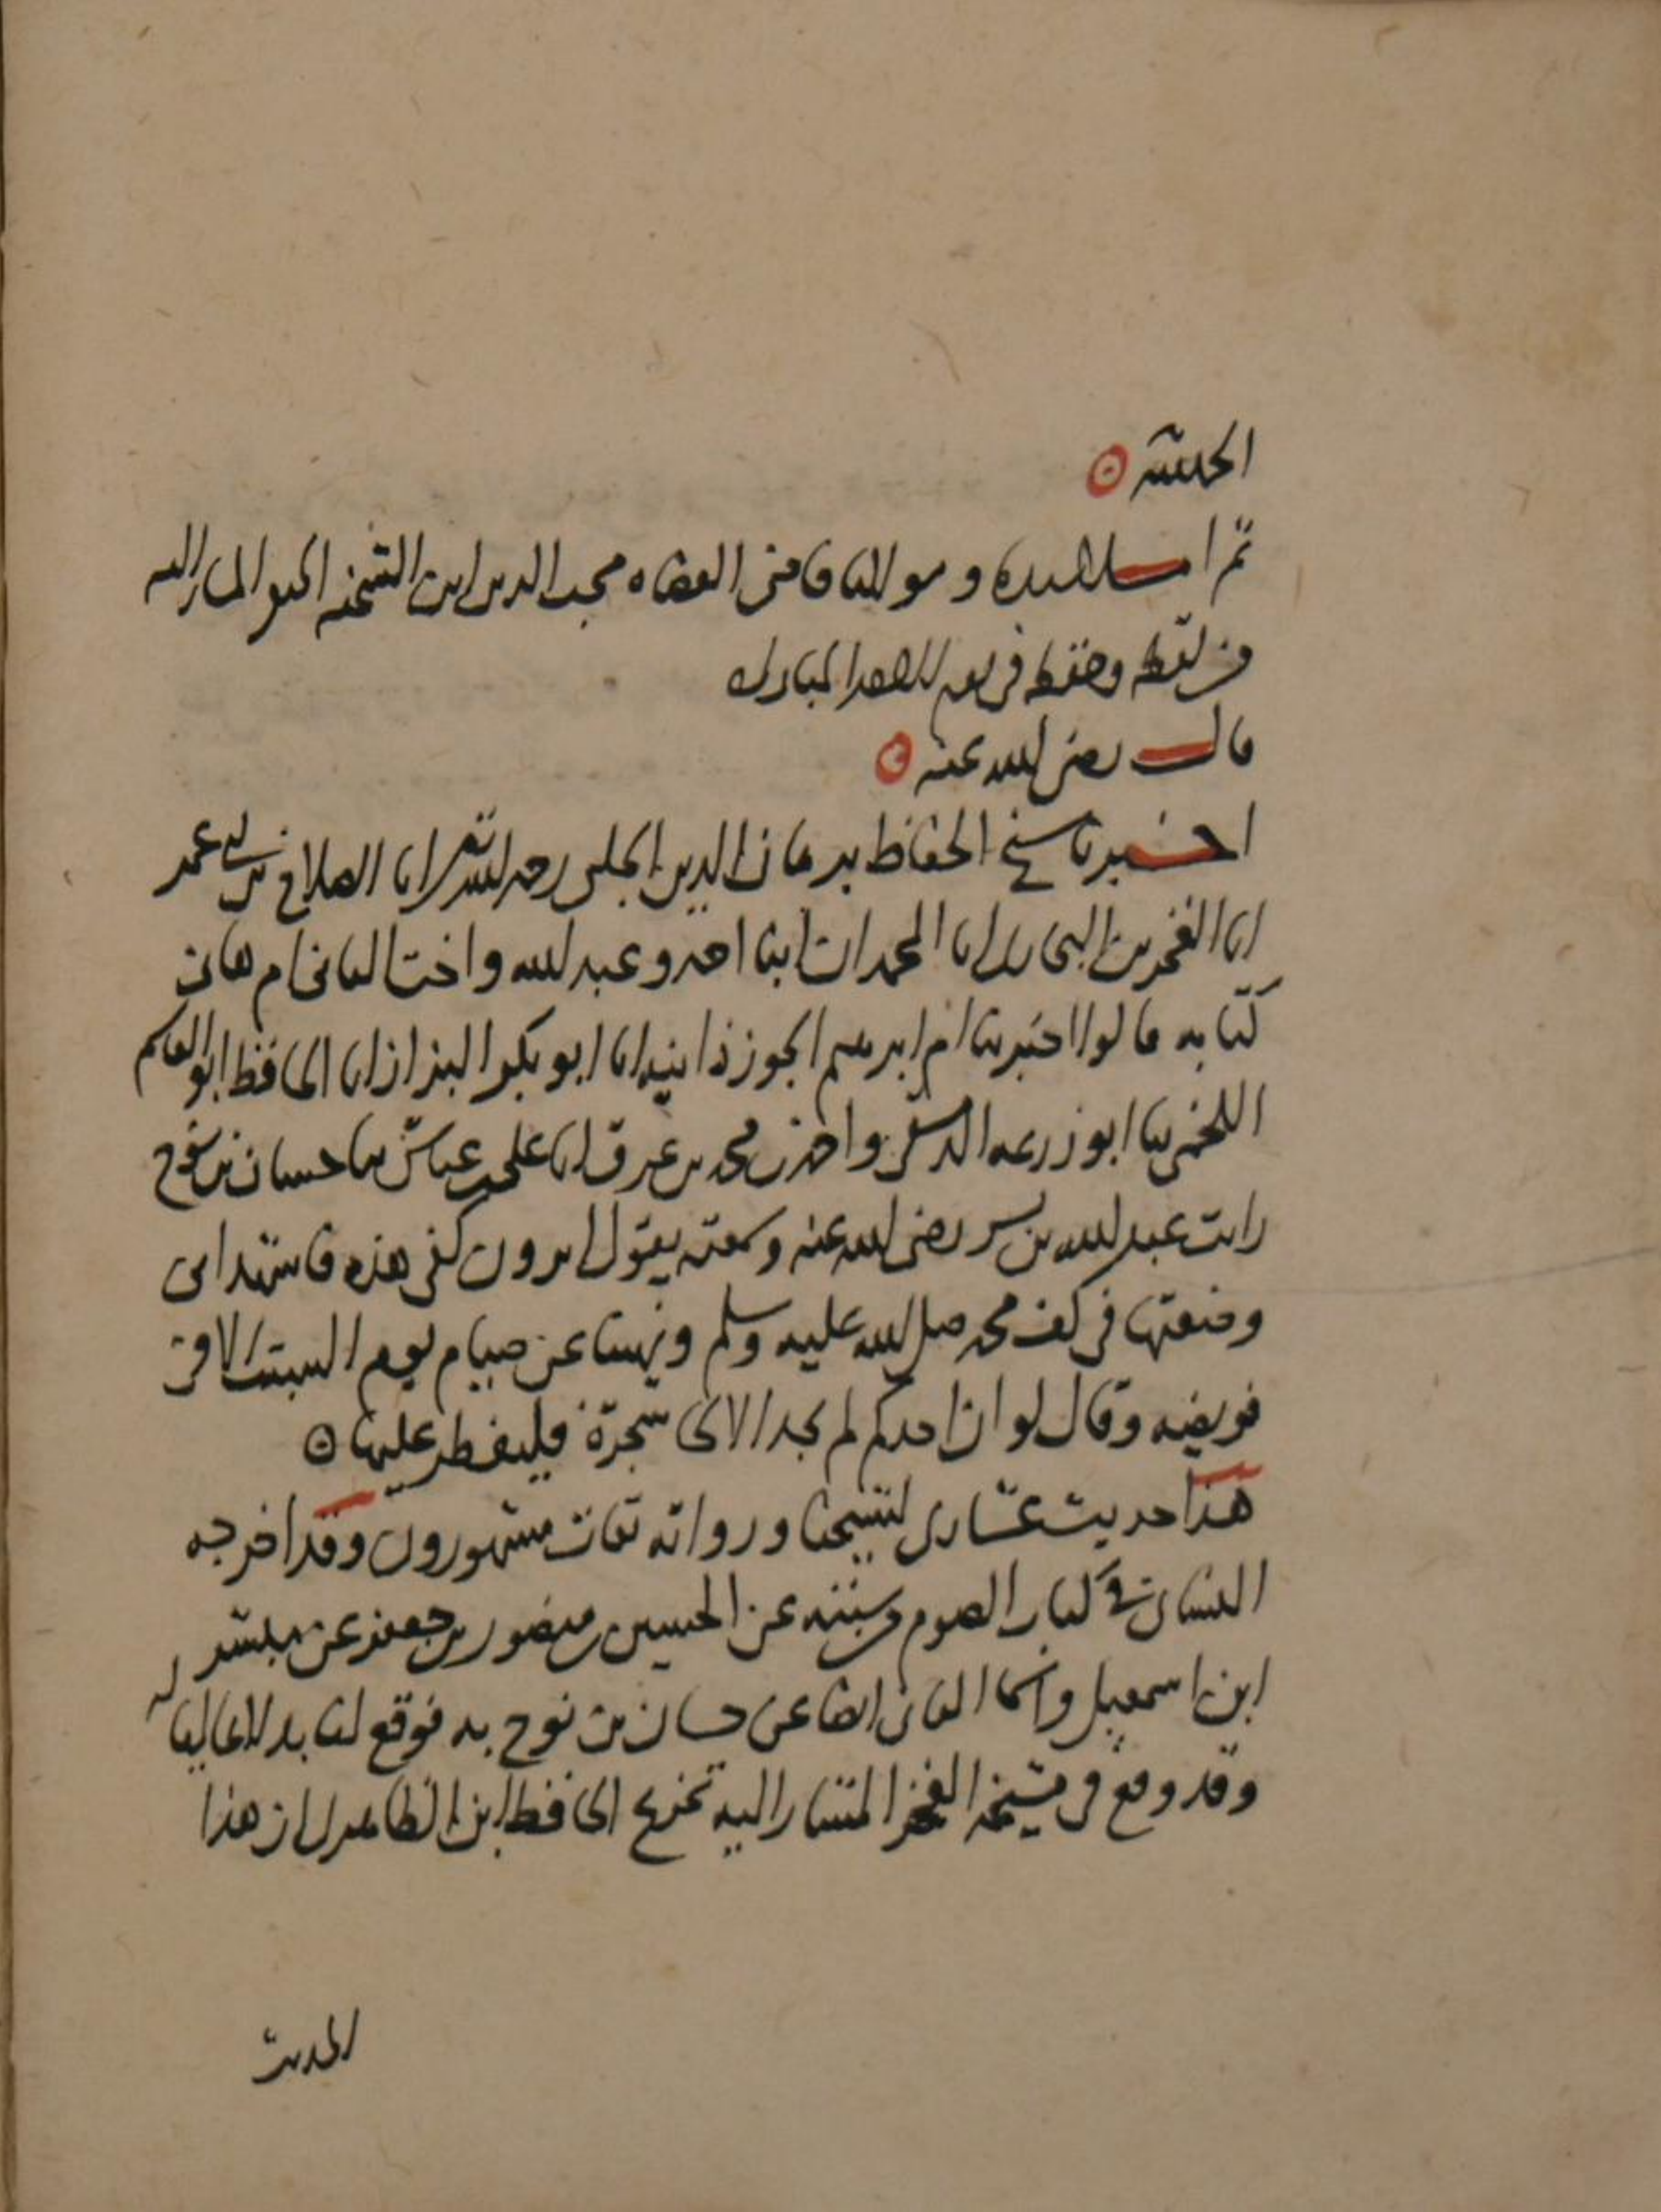 الحلبية
ثم املا سيدنا ومولانا قاضى القضاه محب الدين ابن الشحنه الحنفى المشار اليه
من لفظه وحفظه فى يوم المبارك
قال رضى الله عنه
اخبرنا شيخ الحفاظ برهان الدين الحلبى رحمه الله تعالى انا الصلاح بن ابى عمر
انا الفخر بن البخارى انا المحمدان ابنا احمد وعبد الله واخت الثانى ام هانى
كتابه قالوا اخبرتنا ام ابرهيم الجوزذانيه انا ابو بكر البزاز انا الحافظ ابو القاسم
اللخمى ثنا ابو زرعه الدمشقى واحمد بن محمد بن عرق انا على بن عياش ثنا حسان بن نوح
رايت عبد الله بن بسر رضى الله عنه وسمعته يقول اترون كفى هذه فاشهد انى
وضعتها فى كف محمد صلى الله عليه وسلم ونهينا عن صيام يوم السبت الا فى
فريضه وقال لو ان احدكم لم يجد الا لحى شجرة فليفطر عليها
هذا حديث عشارى لشيخنا ورواته ثقات مشهورون وقد اخرجه
النسائى فى كتاب الصوم من سننه عن الحسين بن منصور بن جعفر عن مبشر
ابن اسمعيل وانما الثانى ايضا عن حسان بن نوح به فوقع لنا بدلا عاليا له
وقد وقع فى مشيخه الفخر المشار اليه تخريج الحافظ ابن الظاهرى ان هذا
الحديث